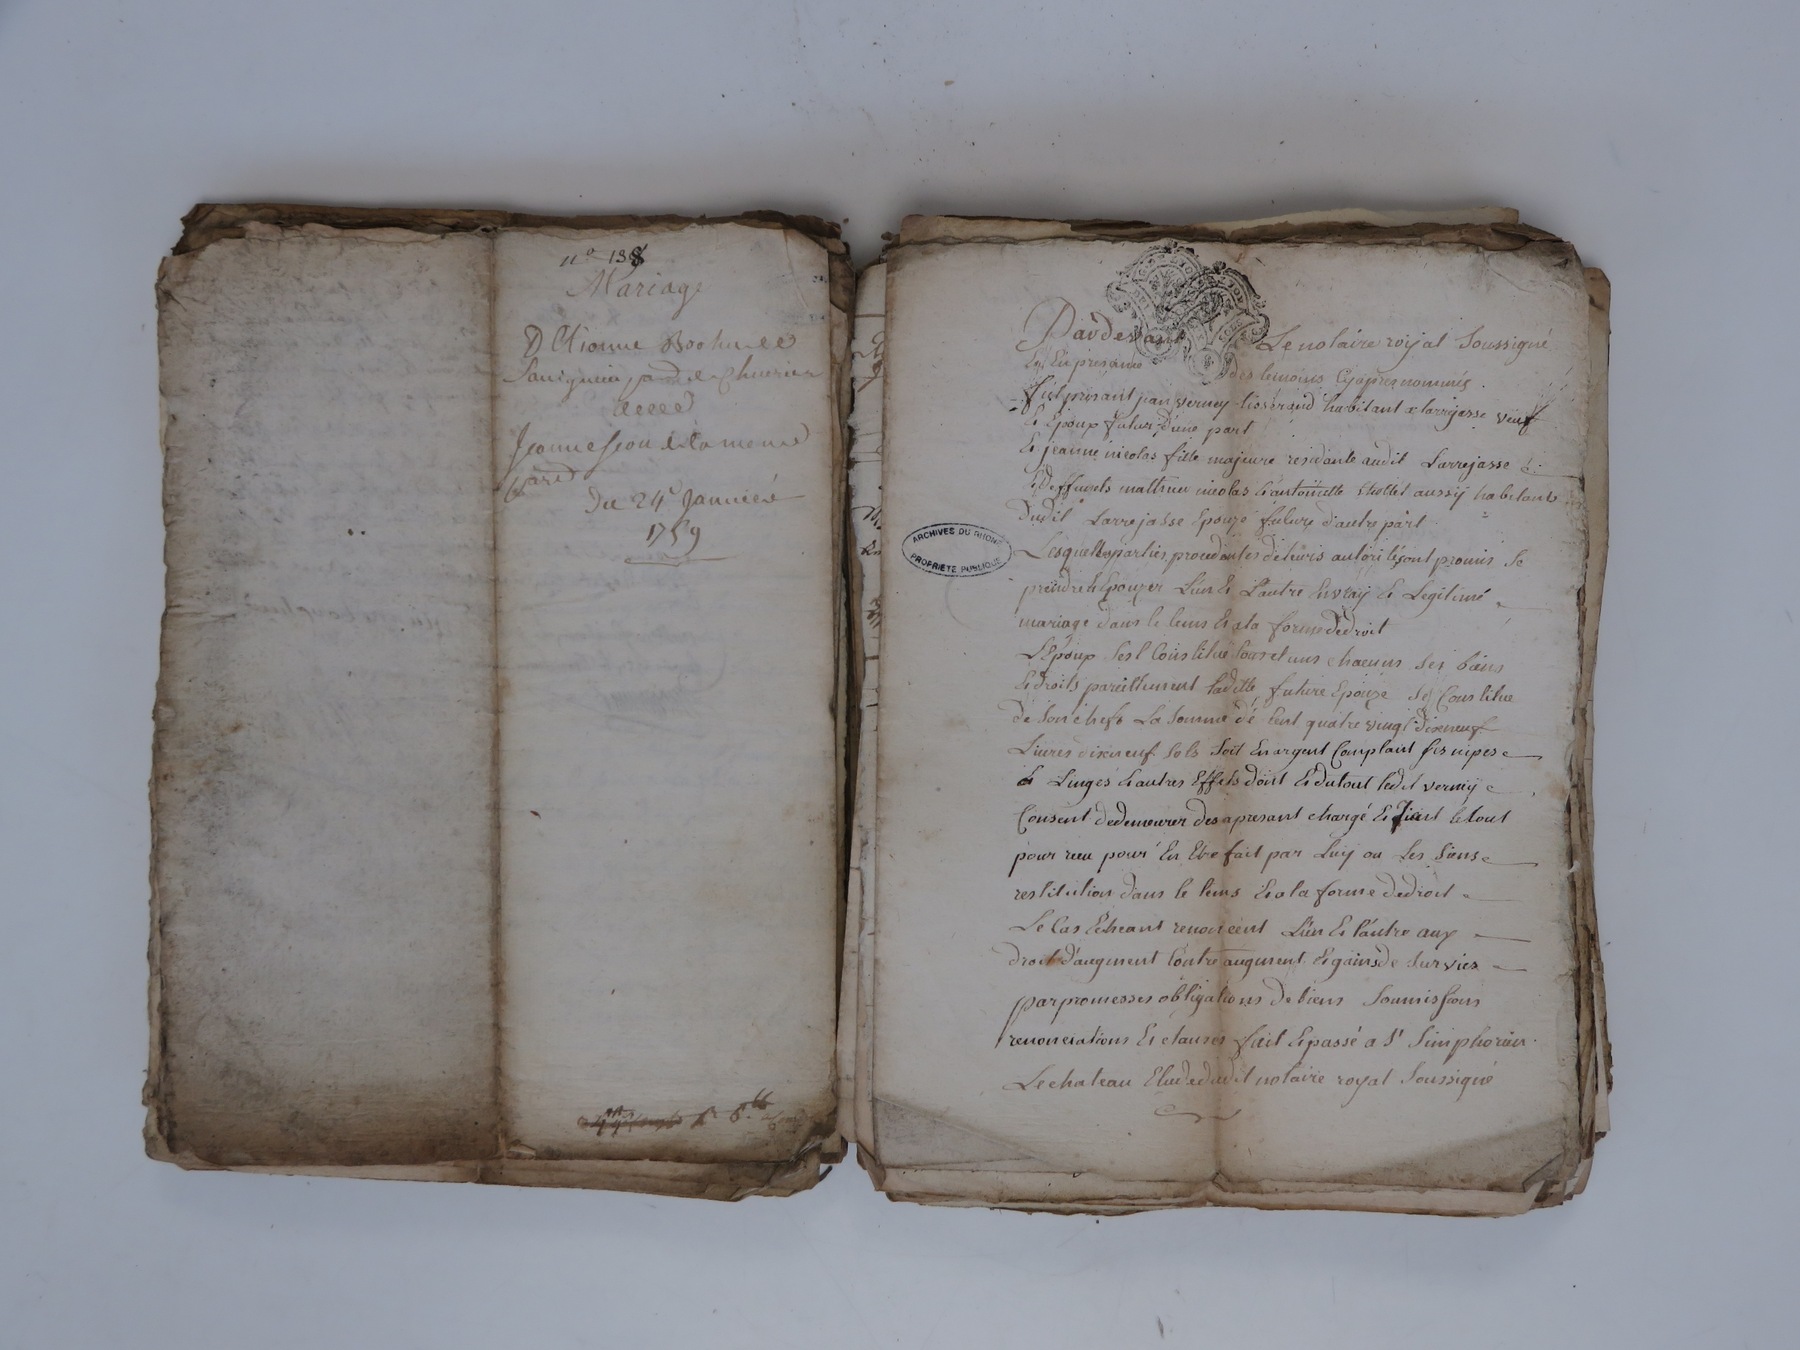 n° 138
Mariage
D'Etienne
Du 24e Janvier
1759
ARCHIVES DU RHONE
PROPRIETE PUBLIQUE
Pardevant Le notaire royal Soussigné
Et En presance des temoins Cyapres nommés
fut présant jean verney tisserand habitant a larrajasse veuf
Et Epoux futur d'une part
Et jeanne nicolas fille majeure residante audit Larrejasse
deffunts matthieu nicolas Et antoinette aussy habitants
Dudit Larrejasse Epouze future d'autre part
Lesquelles parties procedantes de leurs autorités ont promis Se
prendre Et Epouzer L'un Et L'autre En vray Et Legitime
mariage dans le tems Et a la forme de droit
L'Epoux Sest Constitué tous et uns chacuns Ses biens
Et droits pareillement laditte future Epouze Se Constitue
de Son chefs La Somme de Cent quatre vingt dixneuf
Livres dixneuf Sols Soit En argent Comptant Ses nipes
Et Linges Et autres Effets dont Et du tout ledit verney
Consent de demeurer des apresant chargé Et tient le tout
pour recu pour En Etre fait par Luy ou Les Siens
restitution dans le tems Et a la forme de droit
Le Cas Echeant renoncent L'un Et l'autre aux
droit d'augment Contre augment Et gains de Survies
par promesses obligations de biens Soumissions
renonciations Et clauses fait Et passé a St Simphorien
Le chateau Etude dudit notaire royal Soussigné